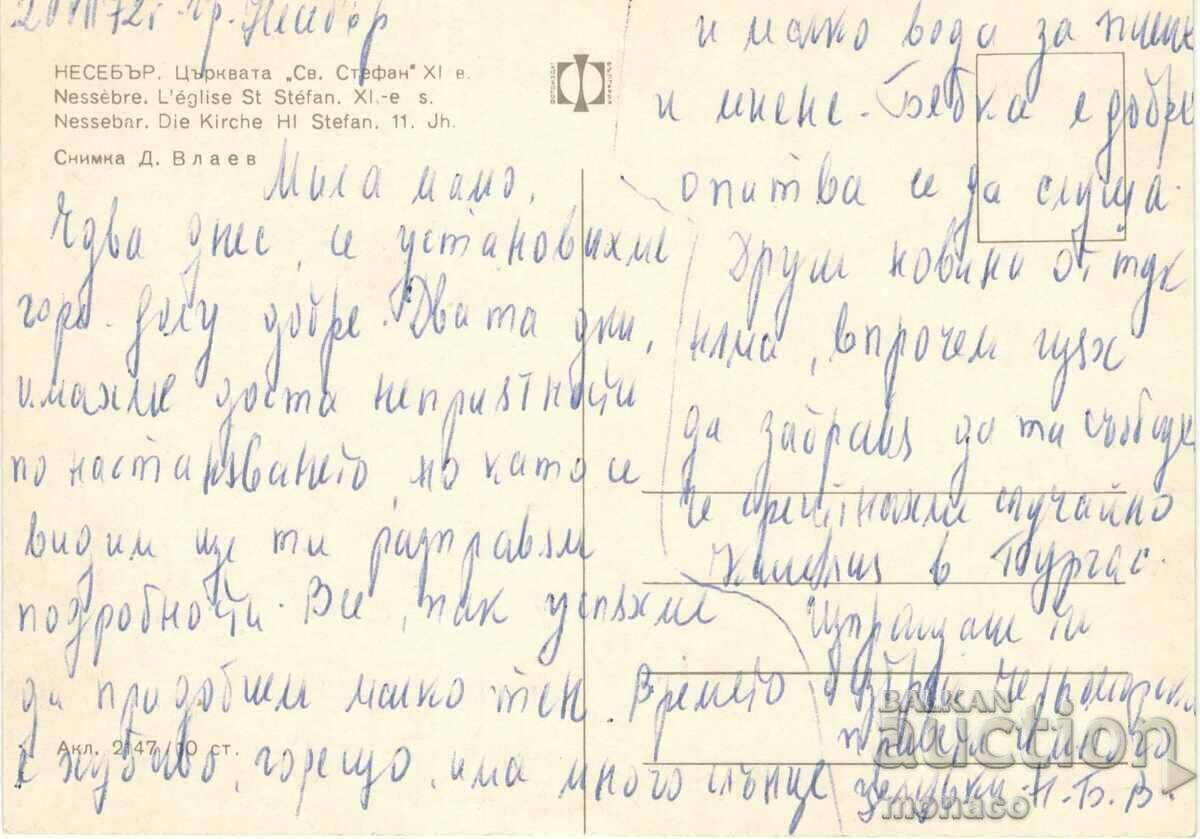 гр. Несебър
НЕСЕБЪР. Църквата „Св. Стефан" XI в.
Nessèbre. L'église St Stéfan. XI.-e s.
Nessebar. Die Kirche Hl Stefan. 11. Jh.
Снимка Д. Влаев
Мила мамо,
Едва днес се установихме
горе-долу добре. Двата дни,
имахме доста неприятности
по настаняването, но като се
видим ще ти разправям
подробности. Все пак успяхме
да придобием малко тен. Времето
е хубаво, горещо, има много слънце
Акл. 2147/10 ст.
и малко вода за пиене
и миене. Бебка е добре
опитва се да слуша.
Други новини от тук
няма, впрочем щях
да забравя да та съобщя
че срещнахме случайно
в Бургас.
Изпращаме ти
черноморски
привет и много
целувки. Н.Б.В.
BALKAN
auction
monaco